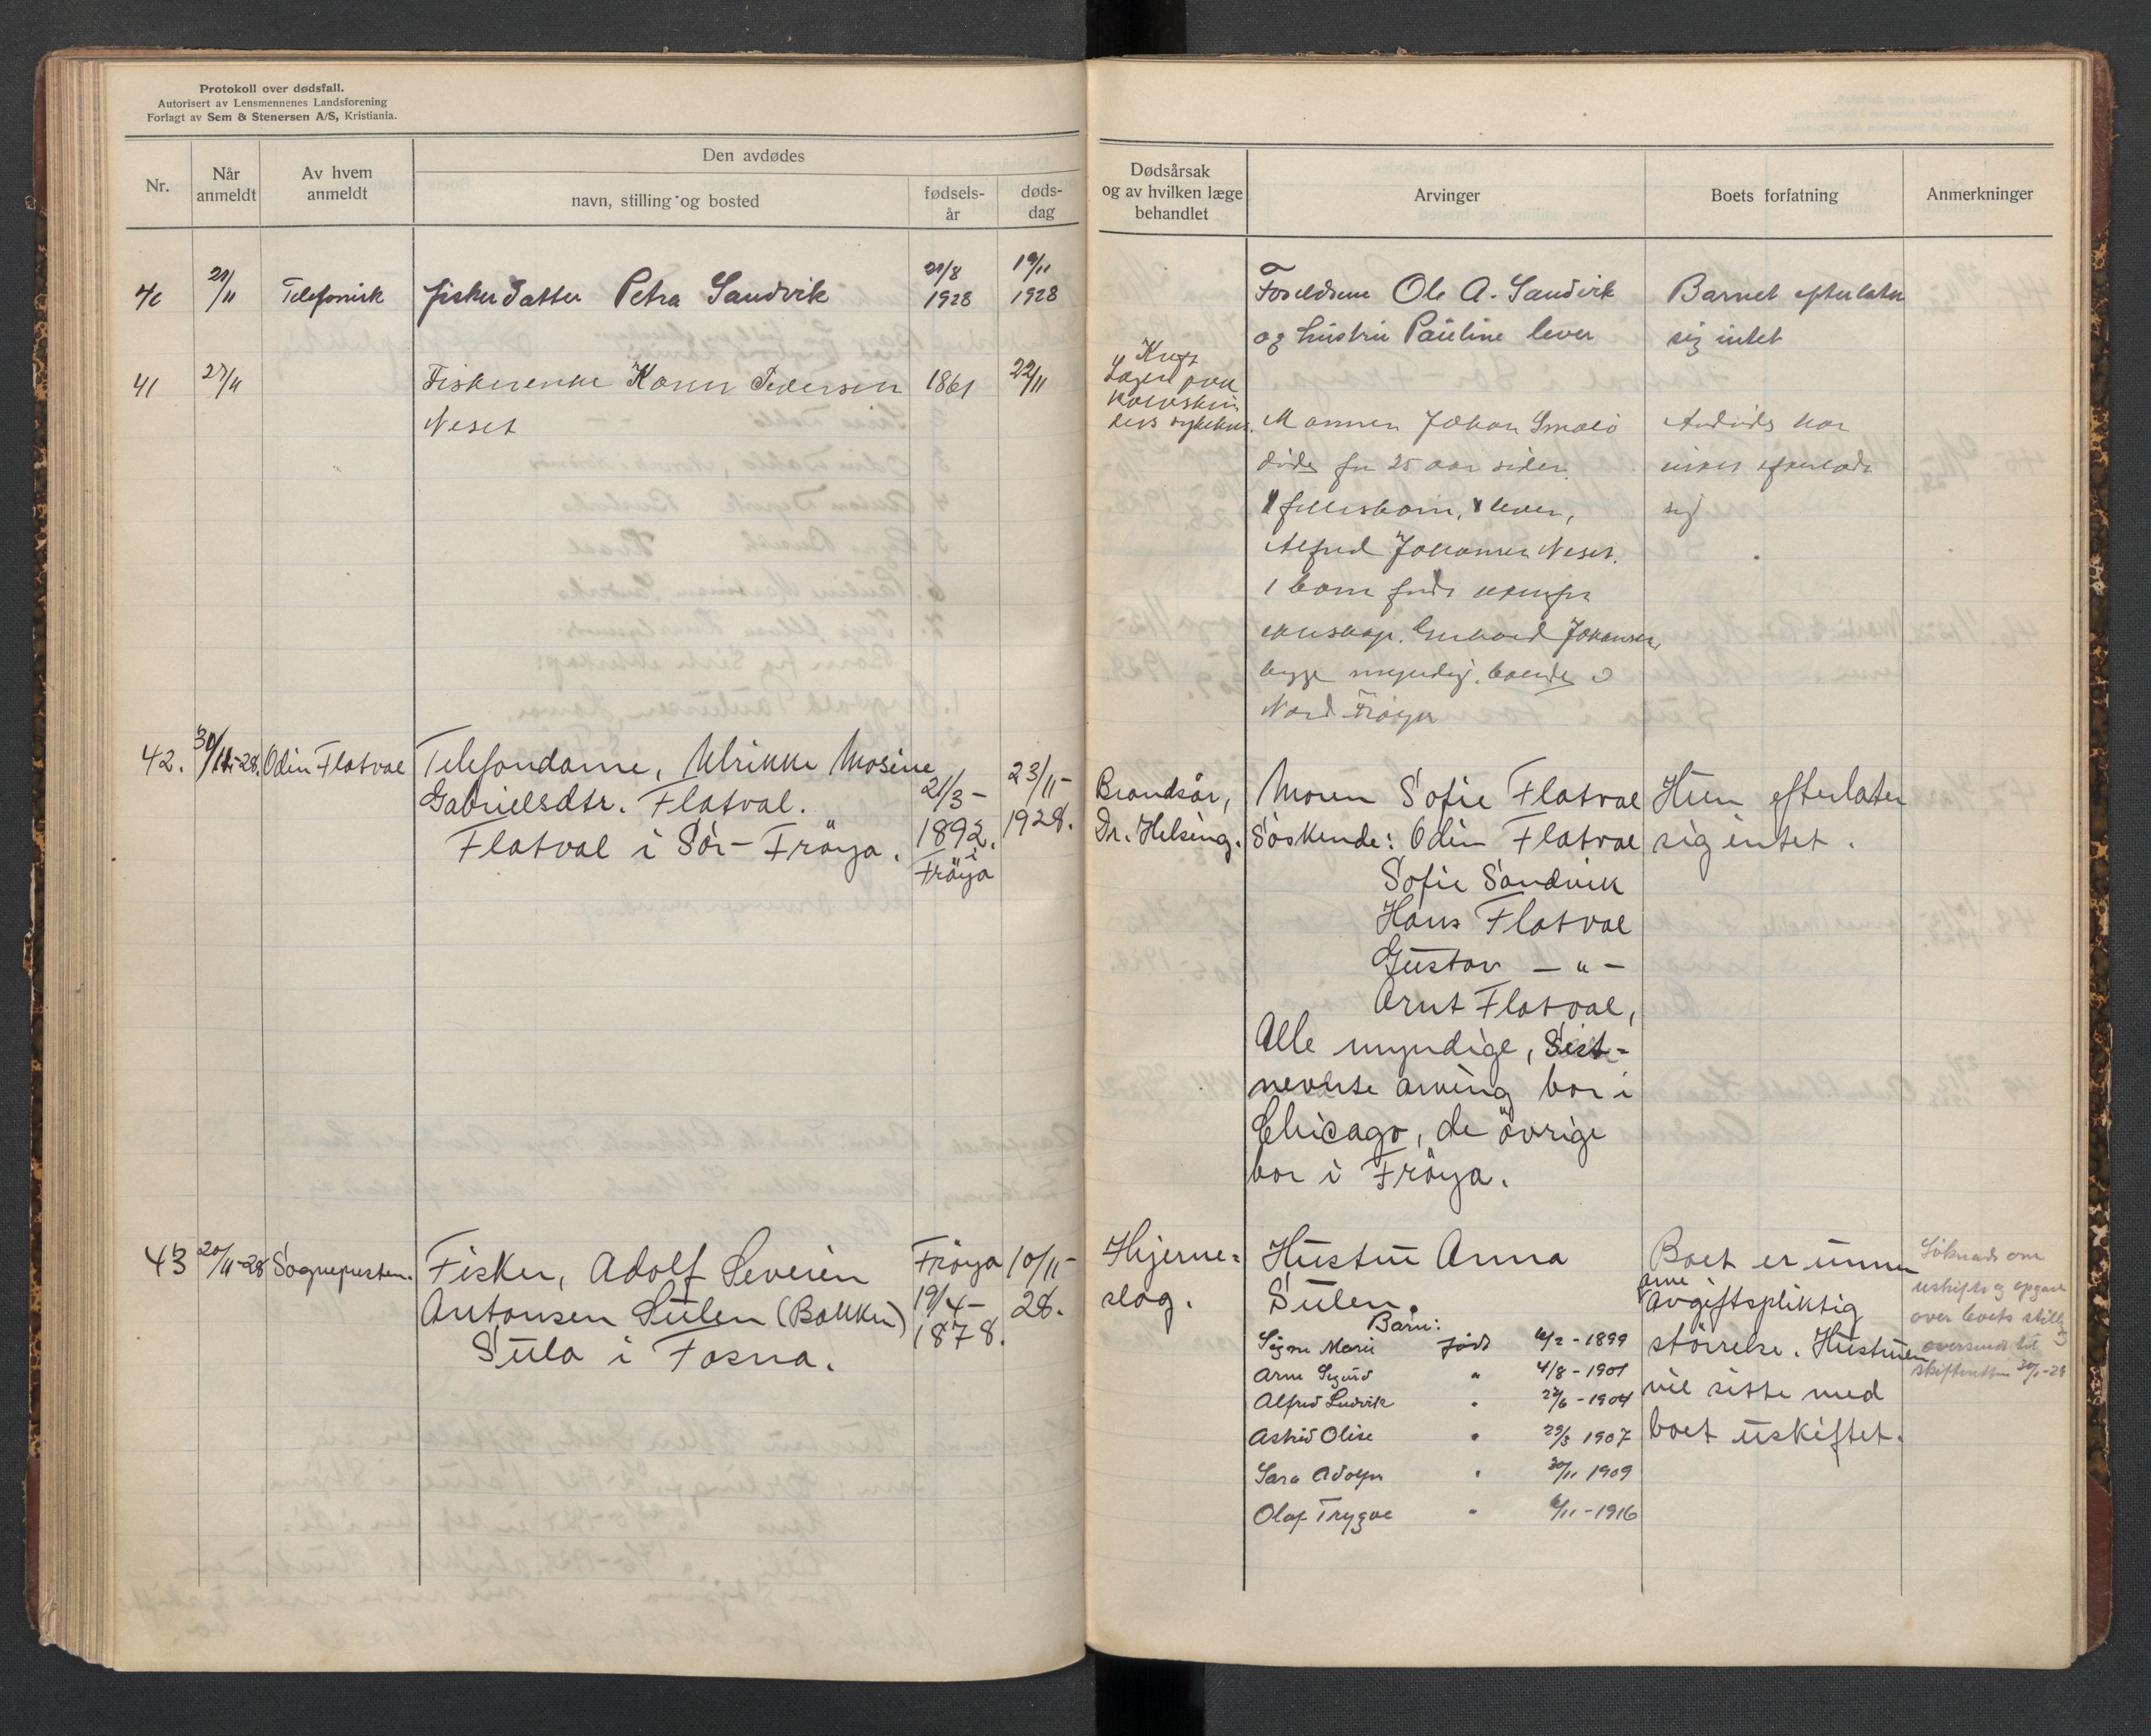 Protokoll over dødsfall.
Autorisert av Lensmennenes Landsforening
Forlagt av Sem & Stenersen A/S, Kristiania.
Nr.
Når anmeldt
Av hvem anmeldt
Den avdødes
navn, stilling og bosted
fødsels-år
døds-dag
Dødsårsak og av hvilken læge behandlet
Arvinger
Boets forfatning
Anmerkninger
21/11 Telefonisk fisker datter Petra Sandvik 21/8 1928 19/11 1928
Foreldrene Ole A. Sandvik
og hustru Pauline lever
Barnet efterlater
sig intet
41 27/11 Fiskerenke Karen Pedersen 1861 22/11
Neset
sykehus.
Mannen Johan
døde for 25 aar siden.
fellesbarn, lever,
Alfred Johansen Neset.
1 barn født
Johansen,
begge myndig, boende i
Nord Frøya
Avdøde har
intet efterladt
sig
42. 30/11-28. Odin Flatval Telefondame, Ulrikke Mosine
Gabrielsdtr. Flatval.
Flatval i Sör-Fröya.
21/3-
1892.
i
Fröya
23/11-
1928.
Brandsår,
Dr. Helsing.
Moren Sofie Flatval
Söskende: Odin Flatval
Sofie Sandvik
Hans Flatval
Gustav — " —
Arnt Flatval,
Alle myndige, Sist-
nevnte arving bor i
Chicago, de övrige
bor i Fröya.
Hun efterlater
sig intet.
43 20/11-28 Sognepresten. Fisker, Adolf Severin
Antonsen Sulen (Bakken)
Sula i Fosna.
Fröya
19/4-
1878.
10/11-
28.
Hjerne-
slag.
Hustru Anna
Sulen.
Barn:
Signe Marie født 6/2-1899
Arne Sigurd " 4/8-1901
Alfred Ludvik " 22/6-1904
Astrid Olise " 29/3 1907
Sara Adolfa " 30/11 1909
Olaf Trygve " 6/11-1916
Boet er under
arve
avgiftspliktig
störrelse. Hustruen
vil sitte med
boet uskiftet.
Söknad om
uskifte og opgave
over boets stilling
oversendt til
skifteretten